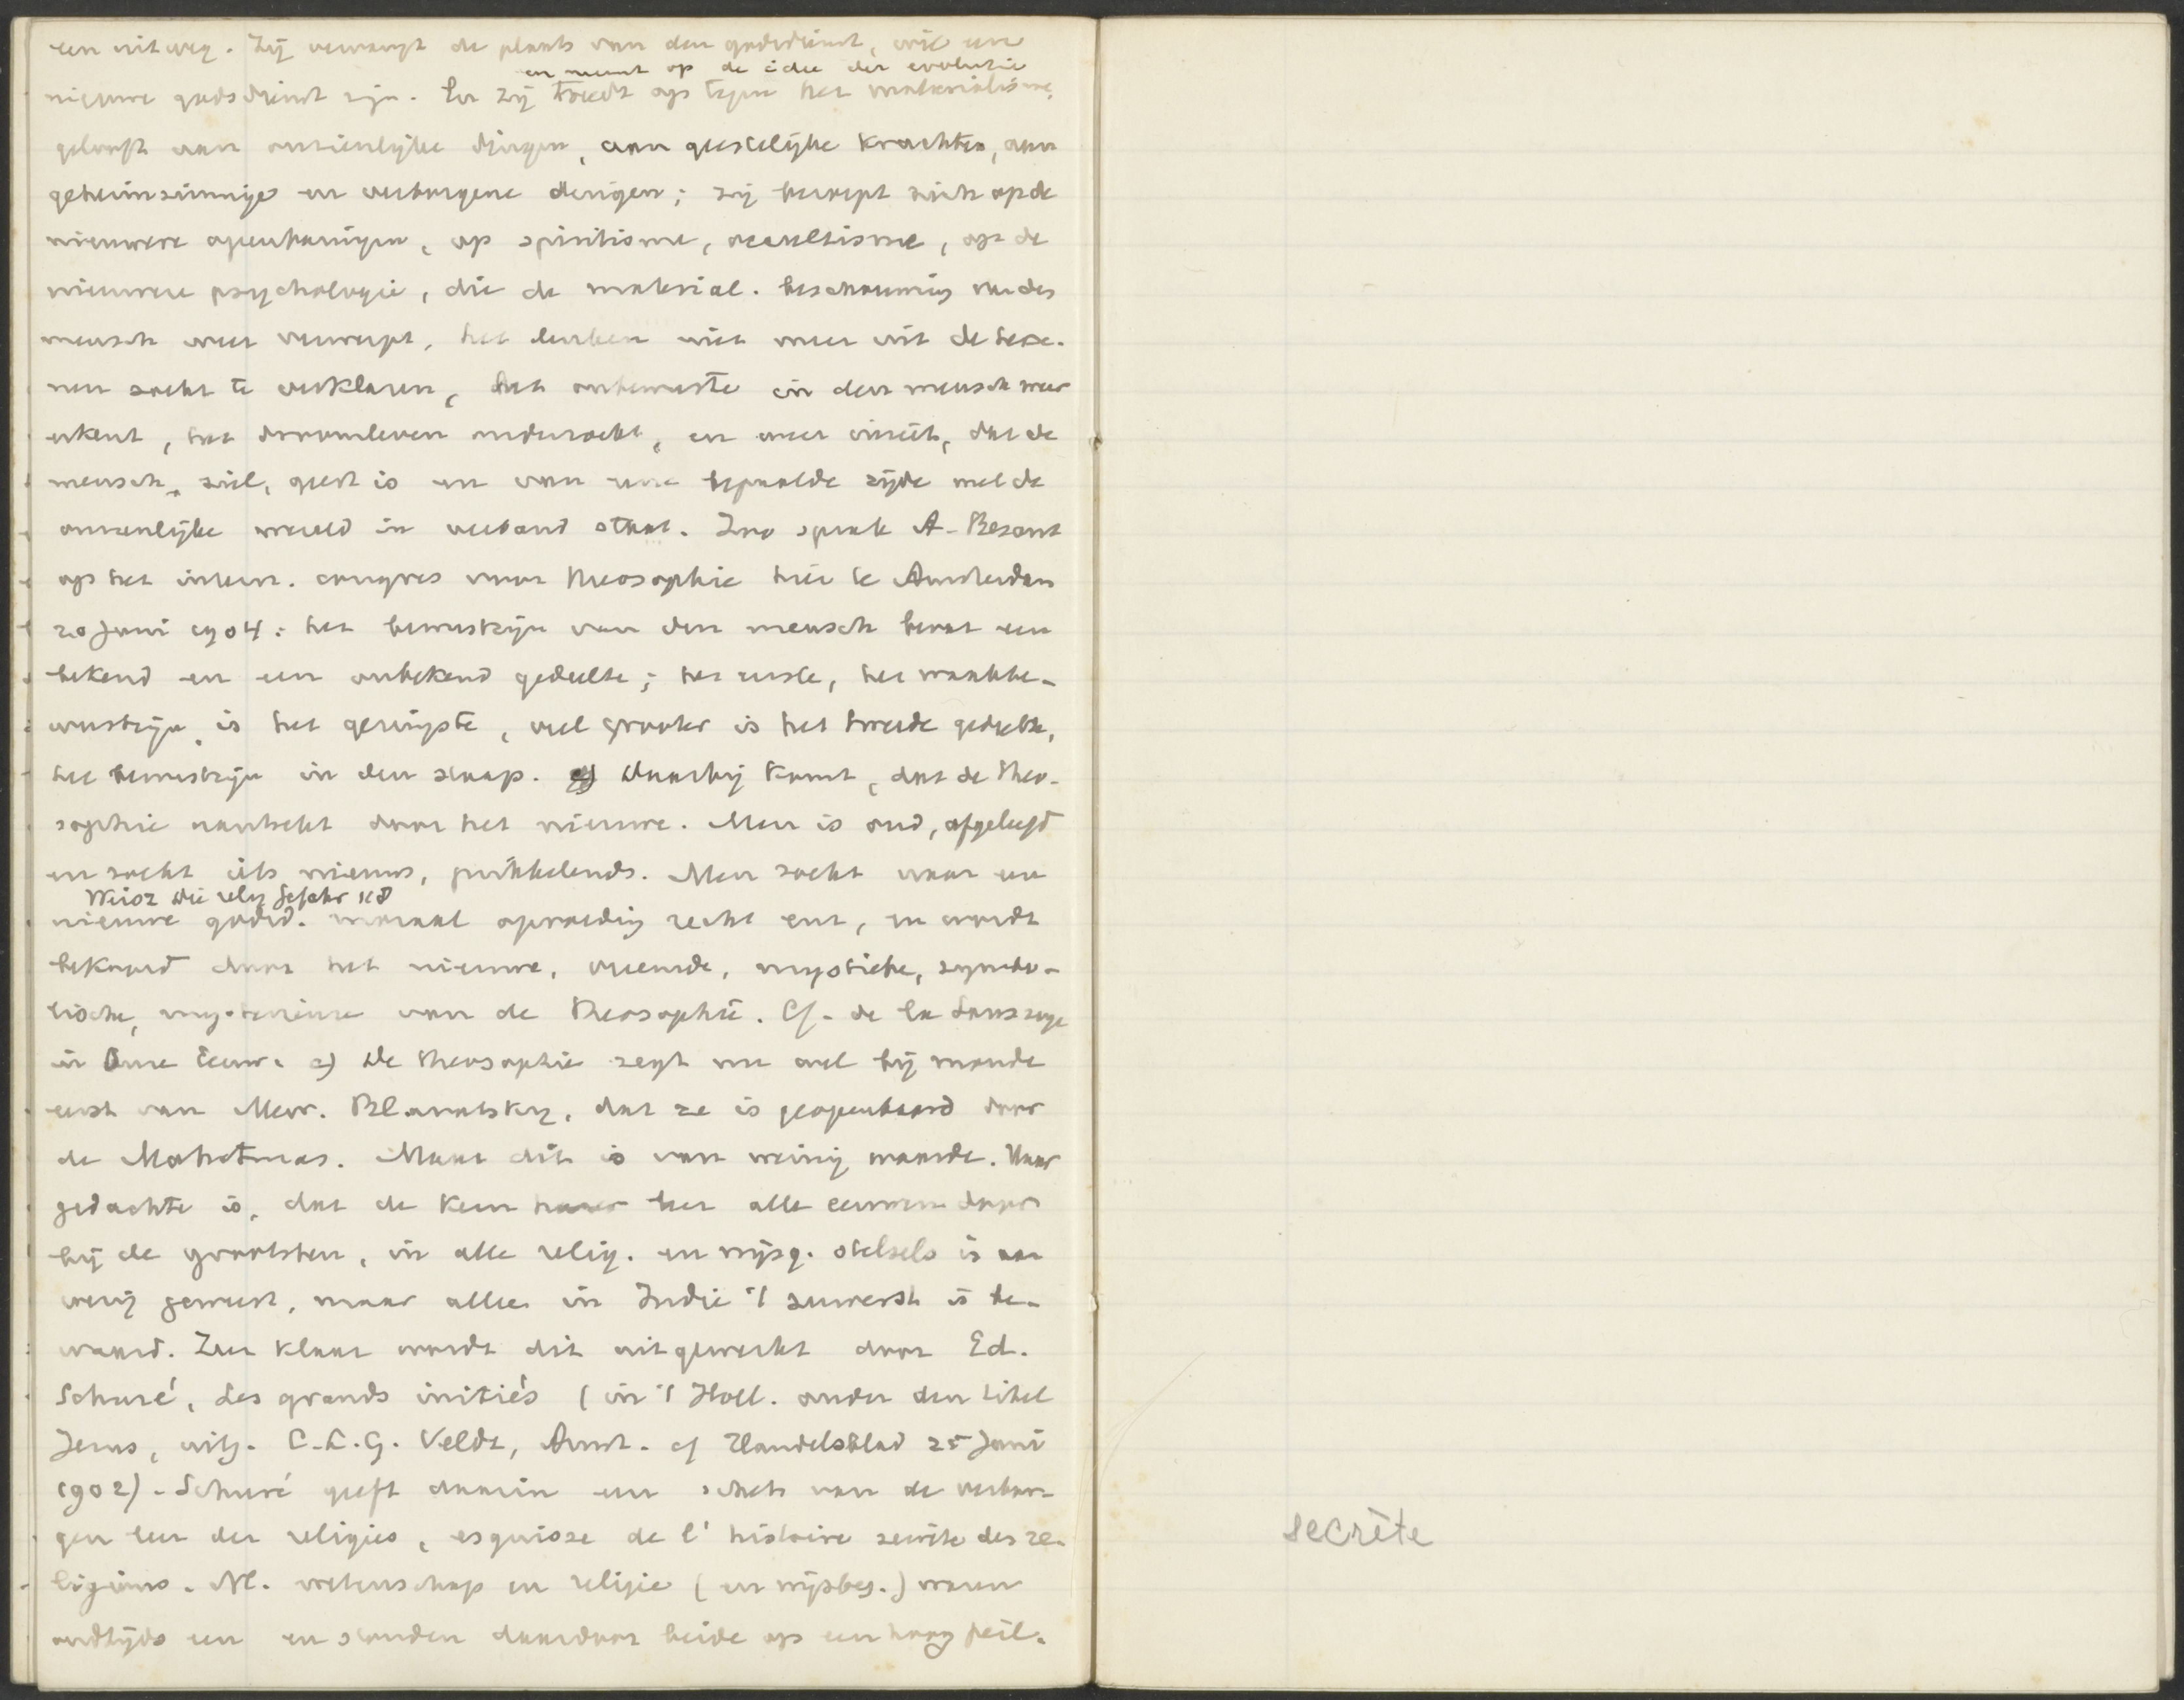 een uitweg. Zij vervangt de plaats van den godsdienst, wil een
en steunt op de idee der evolutie
nieuwe godsdienst zijn. En zij treedt op tegen het materialisme,
gelooft aan onzienlijke dingen, aan geestelijke krachten, aan
geheimzinnige en verborgene dingen; zij beroept zich op de
nieuwere openbaringen, op spiritisme, occultisme, op de
nieuwere psychologie, die de material. beschouwing van den
mensch weer verwerpt, het denken niet meer uit de herse-
nen zoekt te verklaren, het onbewuste in den mensch weer
erkent, het droomleven onderzoekt, en weer inziet, dat de
mensch ziel, geest is en van eene bepaalde zijde met de
onzienlijke wereld in verband staat. Zoo sprak A. Besant
op het intern. congres voor theosophie hier te Amsterdam
20 Juni 1904: het bewustzijn van den mensch bevat een
bekend en een onbekend gedeelte; het eerste, het waakbe-
wustzijn is het geringste, veel grooter is het tweede gedeelte,
het bewustzijn in den slaap. Daarbij komt, dat de theo-
sophie aantrekt door het nieuwe. Men is oud, afgeleefd
en zoekt iets nieuws, prikkelends. Men zoekt naar een
Weisz die relig
nieuwe godsd. moraal opvoeding recht enz, en wordt
bekoord door het nieuwe, vreemde, mystieke, symbo-
lische, mysterieuse van de Theosophie. Cf. de la Saussaye
in Onze Eeuw. 2) De theosophie zegt nu wel bij monde
eerst van Mevr. Blavatsky, dat ze is geopenbaard door
de Mahatmas. Maar dit is van weinig waarde. Haar
gedachte is, dat de kern harer leer alle eeuwen door
bij de grootsten, in alle relig. en wijsg. stelsels is aan
wezig geweest, maar alleen in Indie 't zuiverst is be-
waard. Zeer klaar wordt dit uitgewerkt door Ed.
Schuré, Les grands initiés (in 't Holl. onder den titel
Jezus, uitg. C.L.G. Veldt, Amst. cf Handelsblad 25 Juni
1902). Schuré geeft daarin een schets van de verbor-
gen leer der religies, esquisse de l'histoire secrète des re-
ligions. Nl. wetenschap en religie (en wijsbeg.) waren
oudtijds een en stonden daardoor beide op een hoog peil.
secrète